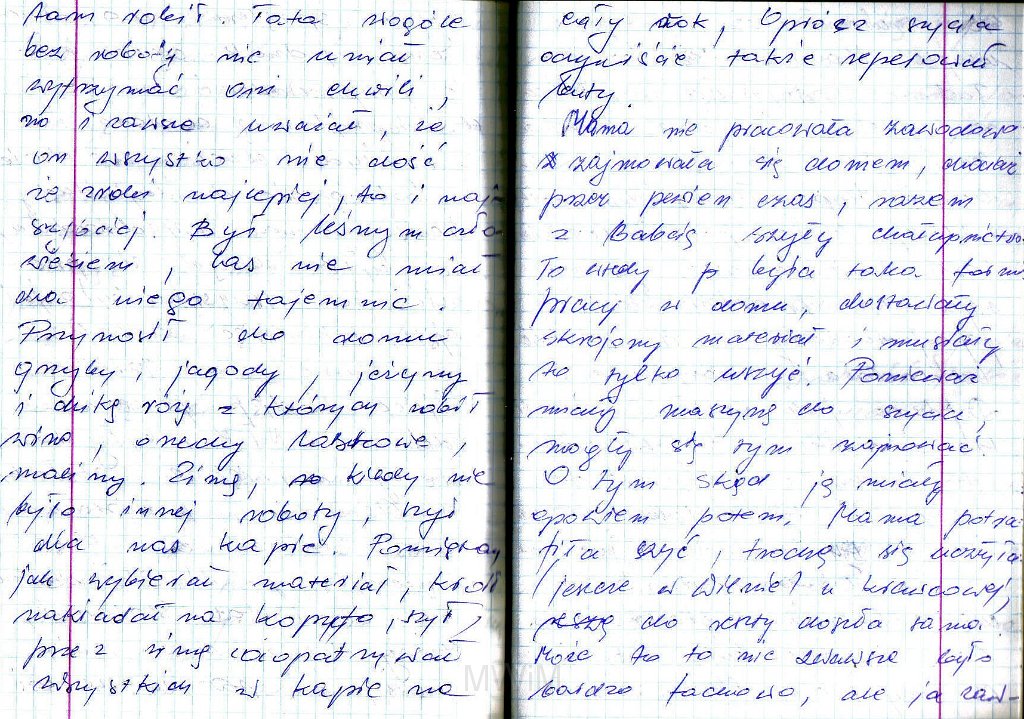 tam robił. Tata wogóle
bez roboty nie umiał
wytrzymać ani chwili,
no i zawsze uważał, że
on wszystko nie dość
że zrobi najlepiej, to i naj-
szybciej. Był leśnym czło
wiekiem, las nie miał
dla niego tajemnic.
Przynosił do domu
grzyby, jagody, jeżyny
i dziką różę z których robił
wino, orzechy laskowe,
maliny. Zimą, kiedy nie
było innej roboty, szył
dla nas kapcie. Pamiętam
jak wybierał materiał, kroił
nakładał na kopyto, szył
przez zimę zaopatrywał
wszystkich w kapcie na
cały rok, Oprócz szycia
oczywiście także reperował
buty.
Mama nie pracowała zawodowo
zajmowała się domem, chociaż
przez pewien czas, razem
z Babcią szyły chałupniczo.
To wtedy była taka forma
pracy w domu, dostawały
skrojony materiał i musiały
to tylko uszyć. Ponieważ
miały maszynę do szycia,
mogły się tym zajmować.
O tym skąd ją miały
opowiem potem. Mama potra
fiła szyć, trochę się uczyła
(jeszcze w Wilnie) u krawcowej,
do reszty doszła sama.
Może to to nie zawsze było
bardzo fachowo, ale ja zaw-
MWM